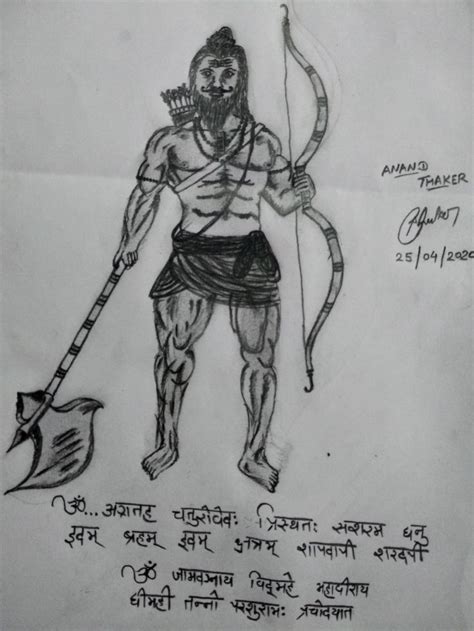 ANAND
THAKER
25/04/2020
ॐ...अग्रतह चतुरीवेवः सवशरम धनु
इवम् ब्रहम् इवम् क्षत्रम् शापवापी शरवपी
ॐ जामवग्नाय विद्महे महावीराय
धीमही तन्नो परशुरामः प्रचोदयात